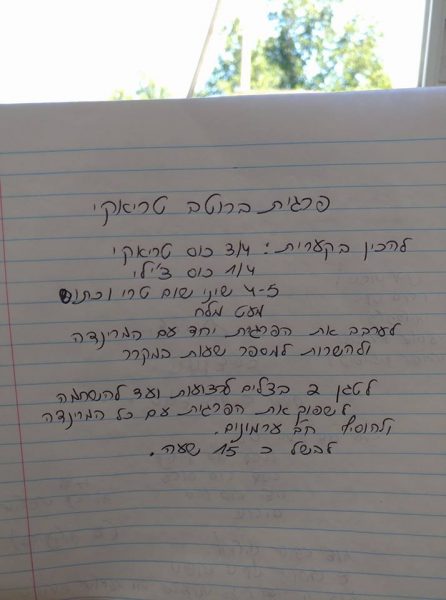 פרגית ברוטב טריאקי
להכין בקערית: 3/4 כוס טריאקי
1/4 כוס צ'ילי
4-5 שיני שום טרי וכתוש
מעט מלח
לערבב את הפרגית יחד עם המרינדה
ולהשרות למספר שעות במקרר
לטגן 2 בצלים לרצועות ועד להשחמה
לשפוך את הפרגית עם כל המרינדה
ולהוסיף חב' ערמונים.
לבשל כ 15 שעה.